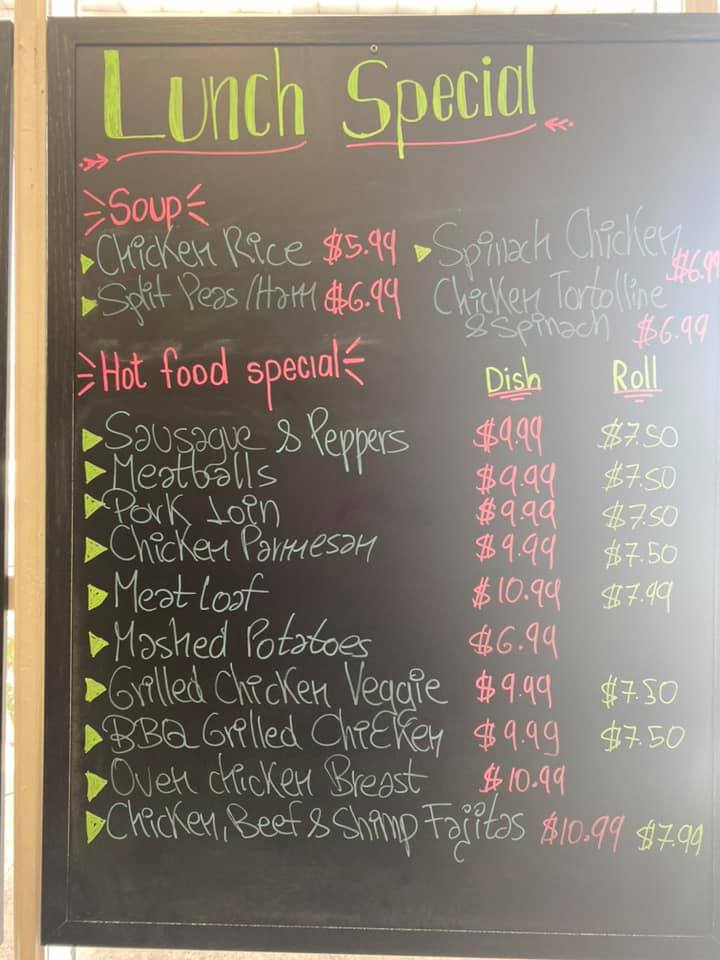 Lunch Special
Soup
Chicken Rice $5.99
Spinach Chicken $6.99
Split Peas/Ham $6.99
Chicken Tortolline
& Spinach $6.99
Hot food special Dish Roll
Sausague & Peppers $9.99 $7.50
Meatballs $9.99 $7.50
Pork Loin $9.99 $7.50
Chicken Parmesan $9.99 $7.50
Meat Loaf $10.99 $7.99
Mashed Potatoes $6.99
Grilled Chicken Veggie $9.99 $7.50
BBQ Grilled Chicken $9.99 $7.50
Oven chicken Breast $10.99
Chicken, Beef & Shimp Fajitas $10.99 $7.99